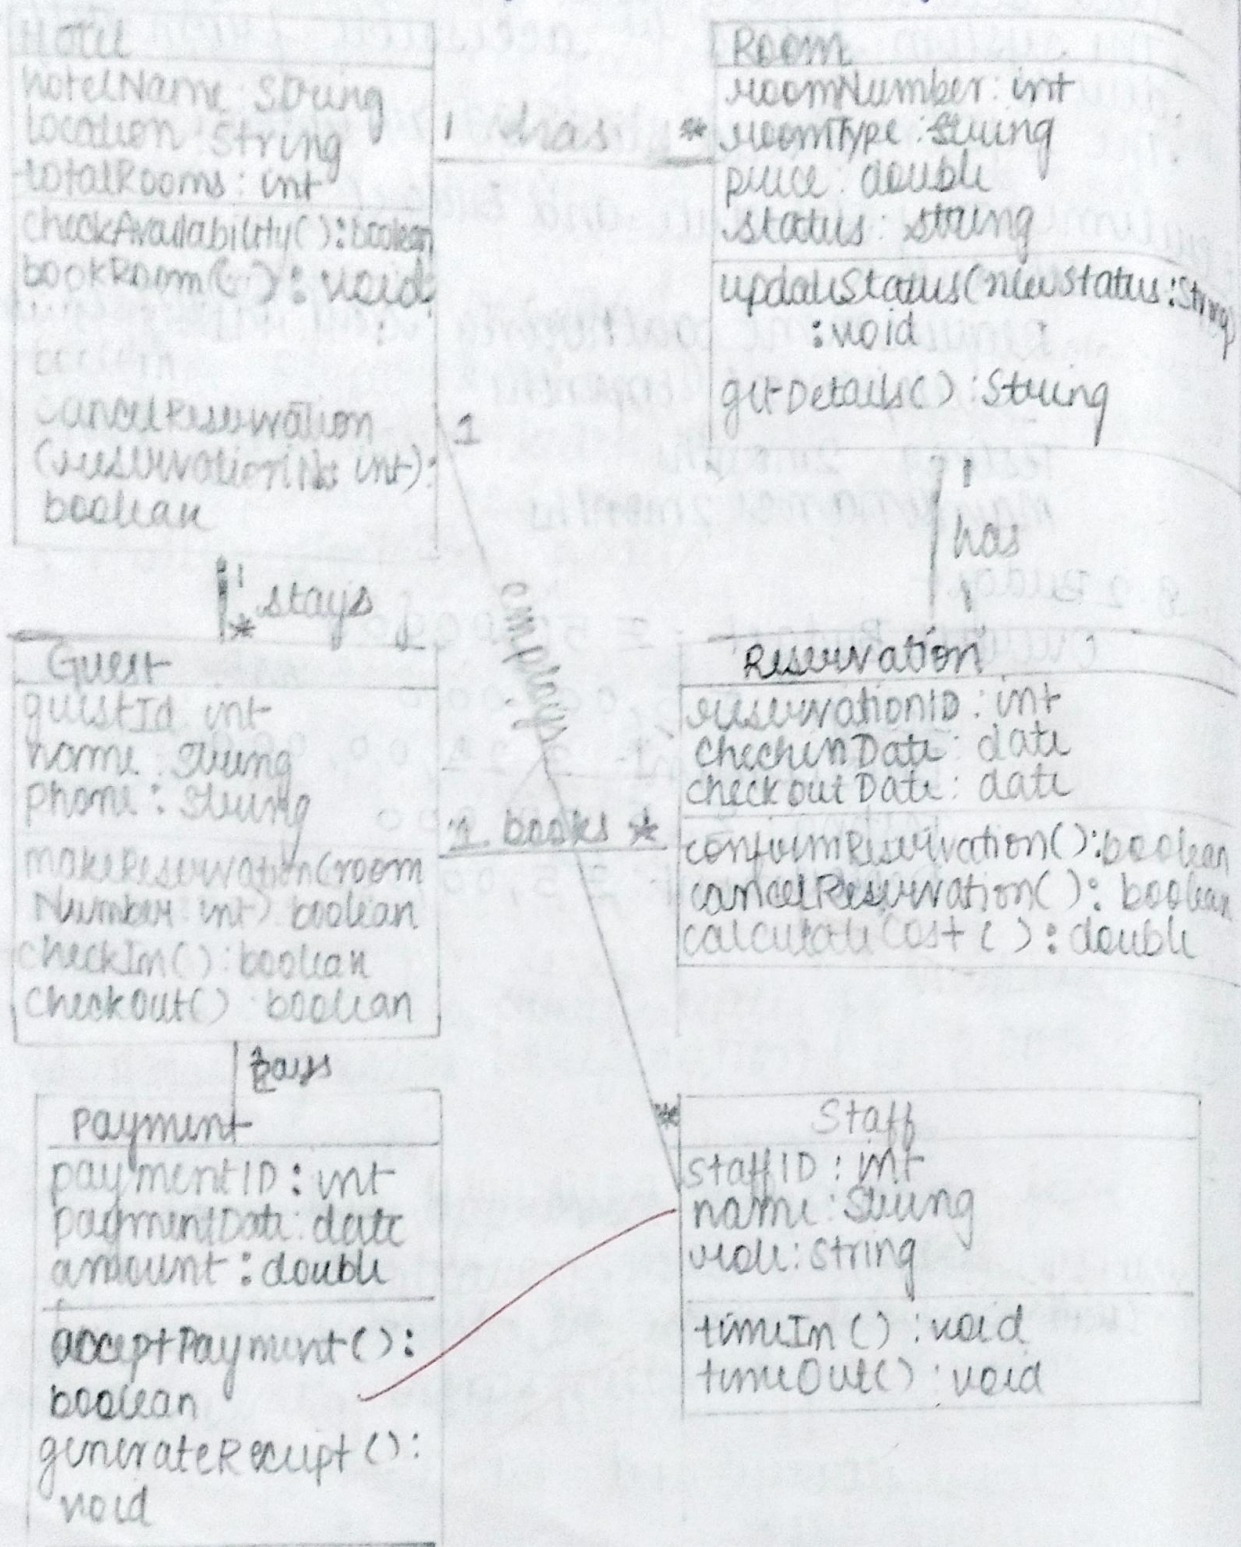 Hotel
hotelName: String
location: String
totalRooms: int
checkAvailability(): boolean
bookRoom( ): void
boolean
cancelReservation
(reservationNo int):
boolean
1 has *
Room
roomNumber: int
roomType: String
price: double
status: string
updateStatus(newStatus: String)
: void
getDetails(): String
1
employs
*
1
stays
*
1
has
1
Guest
guestId int
name: String
phone: String
makeReservation(room
Number int) boolean
checkIn(): boolean
checkOut() boolean
1 books *
Reservation
reservationID: int
checkinDate: date
checkoutDate: date
confirmReservation(): boolean
cancelReservation(): boolean
calculateCost(): double
pays
Payment
paymentID: int
paymentDate: date
amount: double
acceptPayment():
boolean
generateReceipt():
void
Staff
staffID: int
name: String
role: String
timeIn(): void
timeOut(): void